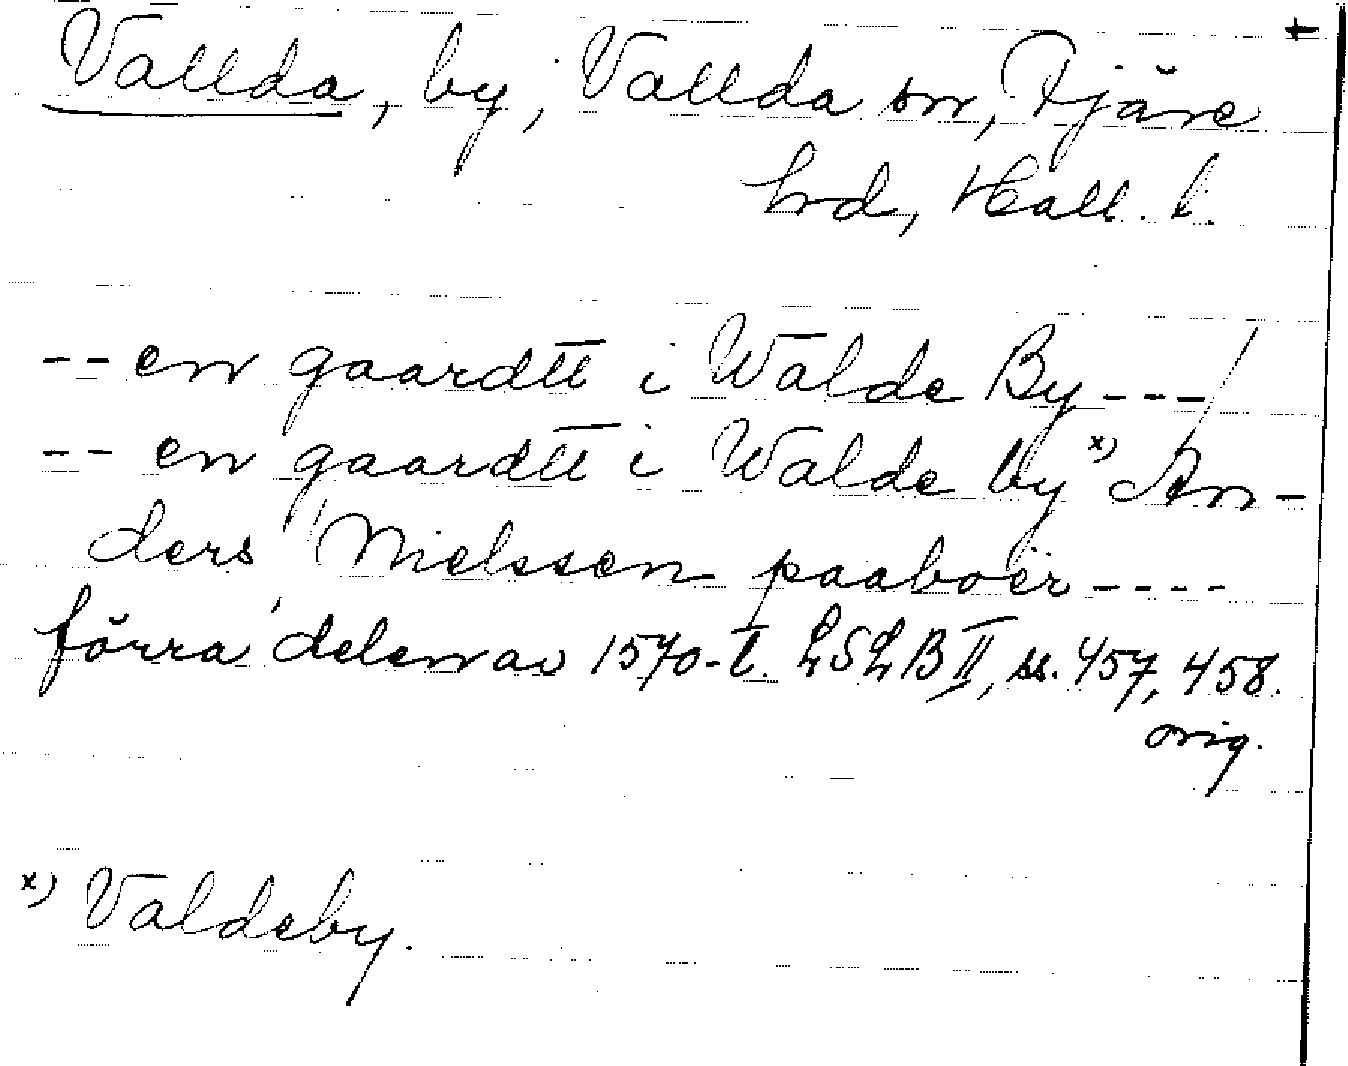 Vallda, by, Vallda sn, Fjäre
hrd, Hall. l.
-- en gaardtt i Walde By ---/
-- en gaardtt i Walde by x) An-
ders Nielssen paaboer ----
förra delen av 1570-t. LSLB II, ss. 457, 458.
orig.
x) Valdeby.